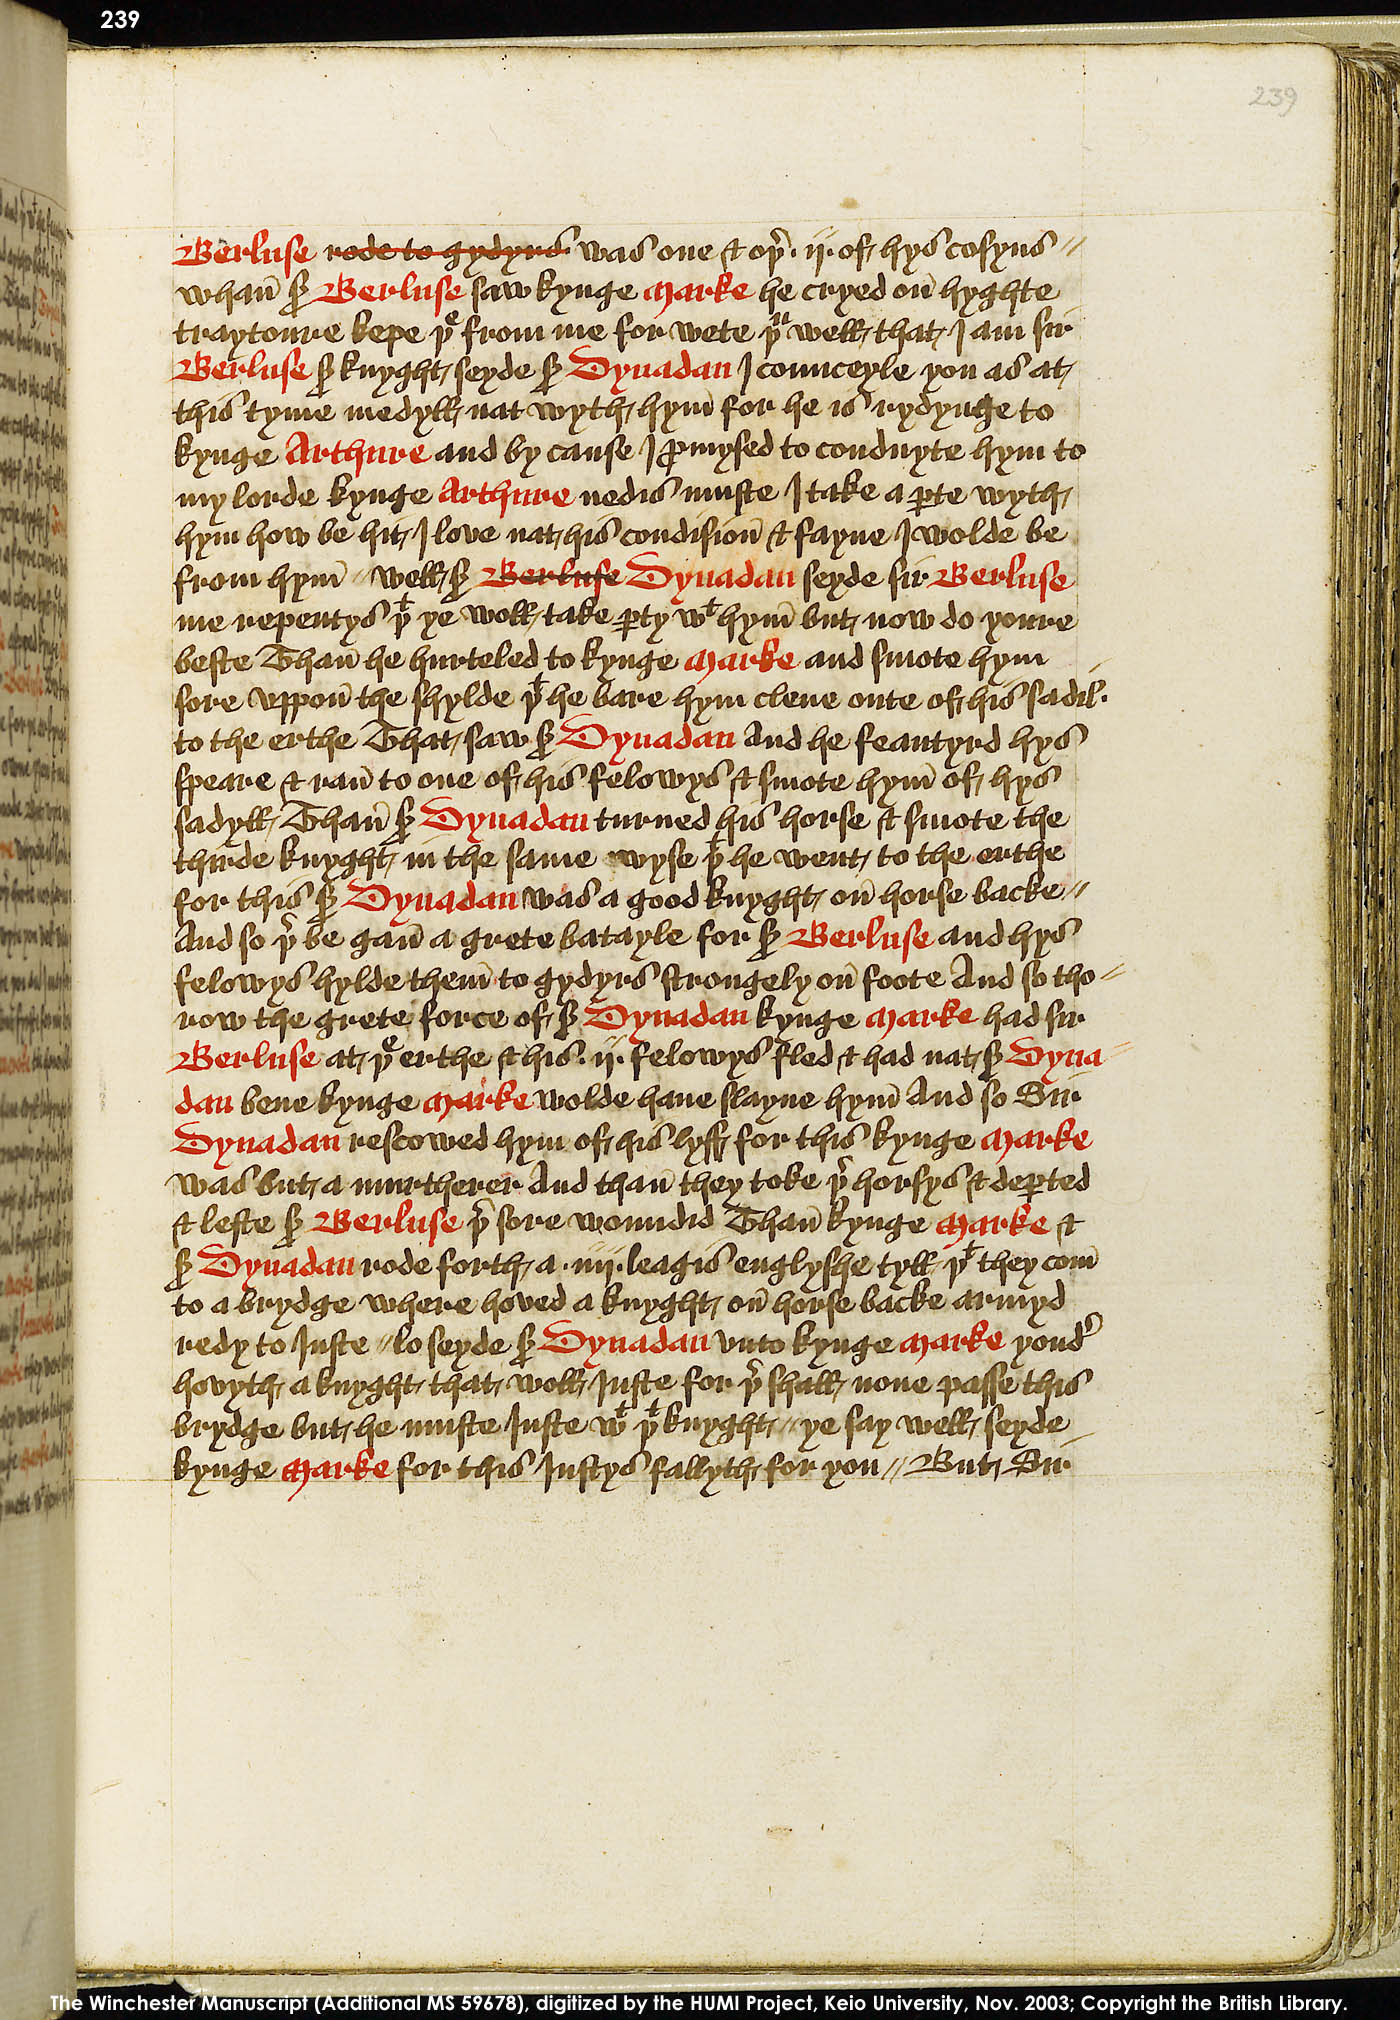 239
239
Berluse rode to gydyrs was one & oþr .ij. of hys cosyns //
whan̄ sr Berluse saw kynge Marke he cryed on̄ hyghte
traytoure kepe þe from me for wete þu well that I am sir
Berluse sr knyght seyde sr Dynadan I counceyle you as at
this tyme medyll nat wyth hym̄ for he is rydynge to
kynge Arthure and by cause I ꝓmysed to conduyte hym to
my lorde kynge Arthure nedis muste I take a ꝑte wyth
hym how be hit I love nat his condision̄ & fayne I wolde be
from hym̄ // well sr Berluse Dynadan seyde sir Berluse
me repentys þt ye woll take ꝑty wt hym̄ but now do youre
beste Than̄ he hurteled to kynge Marke and smote hym
sore vppon̄ the shylde þt he bare hym clene oute of his sadil
to the erthe That saw sr Dynadan And he feautyrd hys
speare & ran̄ to one of his felowys & smote hym̄ of hys
sadyll Than̄ sr Dynadan turned his horse & smote the
thirde knyght in the same wyse þt he went to the erthe
for this sr Dynadan was a good knyght on̄ horse backe //
And so þr be gan̄ a grete batayle for sr Berluse and hys
felowys hylde them̄ to gydyrs strongely on̄ foote And so tho-
row the grete force of sr Dynadan kynge Marke had sir
Berluse at þe erthe & his .ij. felowys fled & had nat sr Dyna-
dan bene kynge Marke wolde haue slayne hym̄ And so Sir
Dynadan rescowed hym of his lyff for this kynge Marke
was but a murtherer And than̄ they toke þr horsys & deꝑted
& lefte sr Berluse þr sore woundid Than̄ kynge Marke &
sr Dynadan rode forth a .iiij. leagis englyshe tyll þt they com̄
to a brydge where hoved a knyght on̄ horse backe armyd
redy to Juste // lo seyde sr Dynadan vnto kynge Marke yondr
hovyth a knyght that woll Juste for þr shall none passe this
brydge but he muste Juste wt þt knyght // ye say well seyde
kynge Marke for this Justys fallyth for you // But Sir
The Winchester Manuscript (Additional MS 59678), digitized by the HUMI Project, Keio University, Nov. 2003; Copyright the British Library.